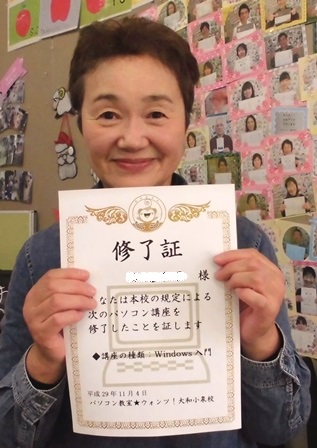 修了証
様
あなたは本校の規定による
次のパソコン講座を
修了したことを証します
◆講座の種類：Windows 入門
平成29年11月4日
パソコン教室★ウォンツ！大和小泉校